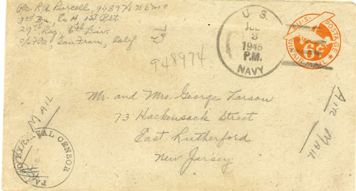 Pfc. R.A. Russell, 968974 USMC
3rd Bn. Co H, 1st Plt.
29th Reg 6th Div.
c/o F.P.O. San Fran, Calif
948974
U. S.
3
1945
P.M.
NAVY
6¢
Mr. and Mrs. George Larson
73 Hackensack Street
East Rutherford
New Jersey
Air Mail
AIR MAIL
PASSED BY NAVAL CENSOR